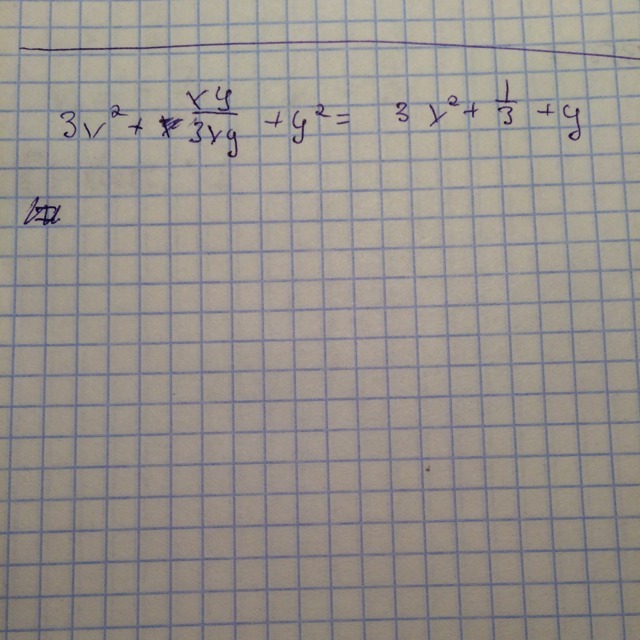 3x² + xy/3xy + y² = 3x² + 1/3 + y